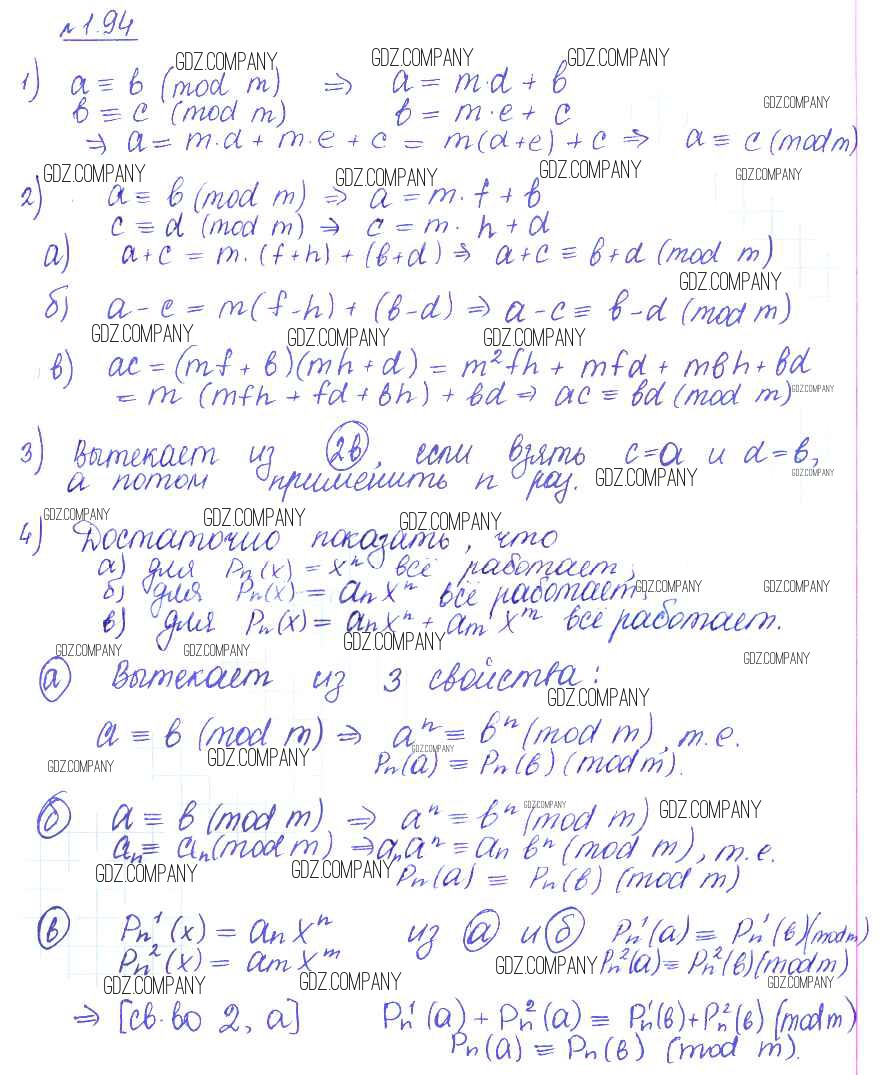 № 1.94
GDZ.COMPANY GDZ.COMPANY GDZ.COMPANY
1) a ≡ b (mod m) ⇒ a = m·d + b
GDZ.COMPANY
b ≡ c (mod m) b = m·e + c
⇒ a = m·d + m·e + c = m(d+e) + c ⇒ a ≡ c (mod m)
GDZ.COMPANY GDZ.COMPANY GDZ.COMPANY GDZ.COMPANY
2) a ≡ b (mod m) ⇒ a = m·f + b
c ≡ d (mod m) ⇒ c = m·h + d
а) a+c = m·(f+h) + (b+d) ⇒ a+c ≡ b+d (mod m)
GDZ.COMPANY
б) a-c = m(f-h) + (b-d) ⇒ a-c ≡ b-d (mod m)
GDZ.COMPANY GDZ.COMPANY GDZ.COMPANY
в) ac = (mf + b)(mh + d) = m²fh + mfd + mbh + bd
= m (mfh + fd + bh) + bd ⇒ ac ≡ bd (mod m)
GDZ.COMPANY
3) Вытекает из 2в, если взять c=a и d=b,
а потом применить n раз.
GDZ.COMPANY GDZ.COMPANY
GDZ.COMPANY GDZ.COMPANY GDZ.COMPANY
4) Достаточно показать, что
а) для Pn(x) = xⁿ всё работает;
б) для Pn(x) = anxⁿ всё работает;
GDZ.COMPANY GDZ.COMPANY
в) для Pn(x) = anxⁿ + amx^m всё работает.
GDZ.COMPANY
GDZ.COMPANY GDZ.COMPANY GDZ.COMPANY
а Вытекает из 3 свойства:
GDZ.COMPANY
a ≡ b (mod m) ⇒ aⁿ ≡ bⁿ (mod m), т.е.
GDZ.COMPANY GDZ.COMPANY GDZ.COMPANY
Pn(a) ≡ Pn(b) (mod m).
б a ≡ b (mod m) ⇒ aⁿ ≡ bⁿ (mod m)
GDZ.COMPANY GDZ.COMPANY
an ≡ an (mod m) ⇒ anaⁿ ≡ an bⁿ (mod m), т.е.
GDZ.COMPANY GDZ.COMPANY
Pn(a) ≡ Pn(b) (mod m)
в Pn¹(x) = anxⁿ из а и б Pn¹(a) ≡ Pn¹(b)(mod m)
Pn²(x) = amx^m Pn²(a) ≡ Pn²(b)(mod m)
GDZ.COMPANY
GDZ.COMPANY GDZ.COMPANY GDZ.COMPANY
⇒ [св-во 2, а] Pn¹(a) + Pn²(a) ≡ Pn¹(b) + Pn²(b) (mod m)
Pn(a) ≡ Pn(b) (mod m).